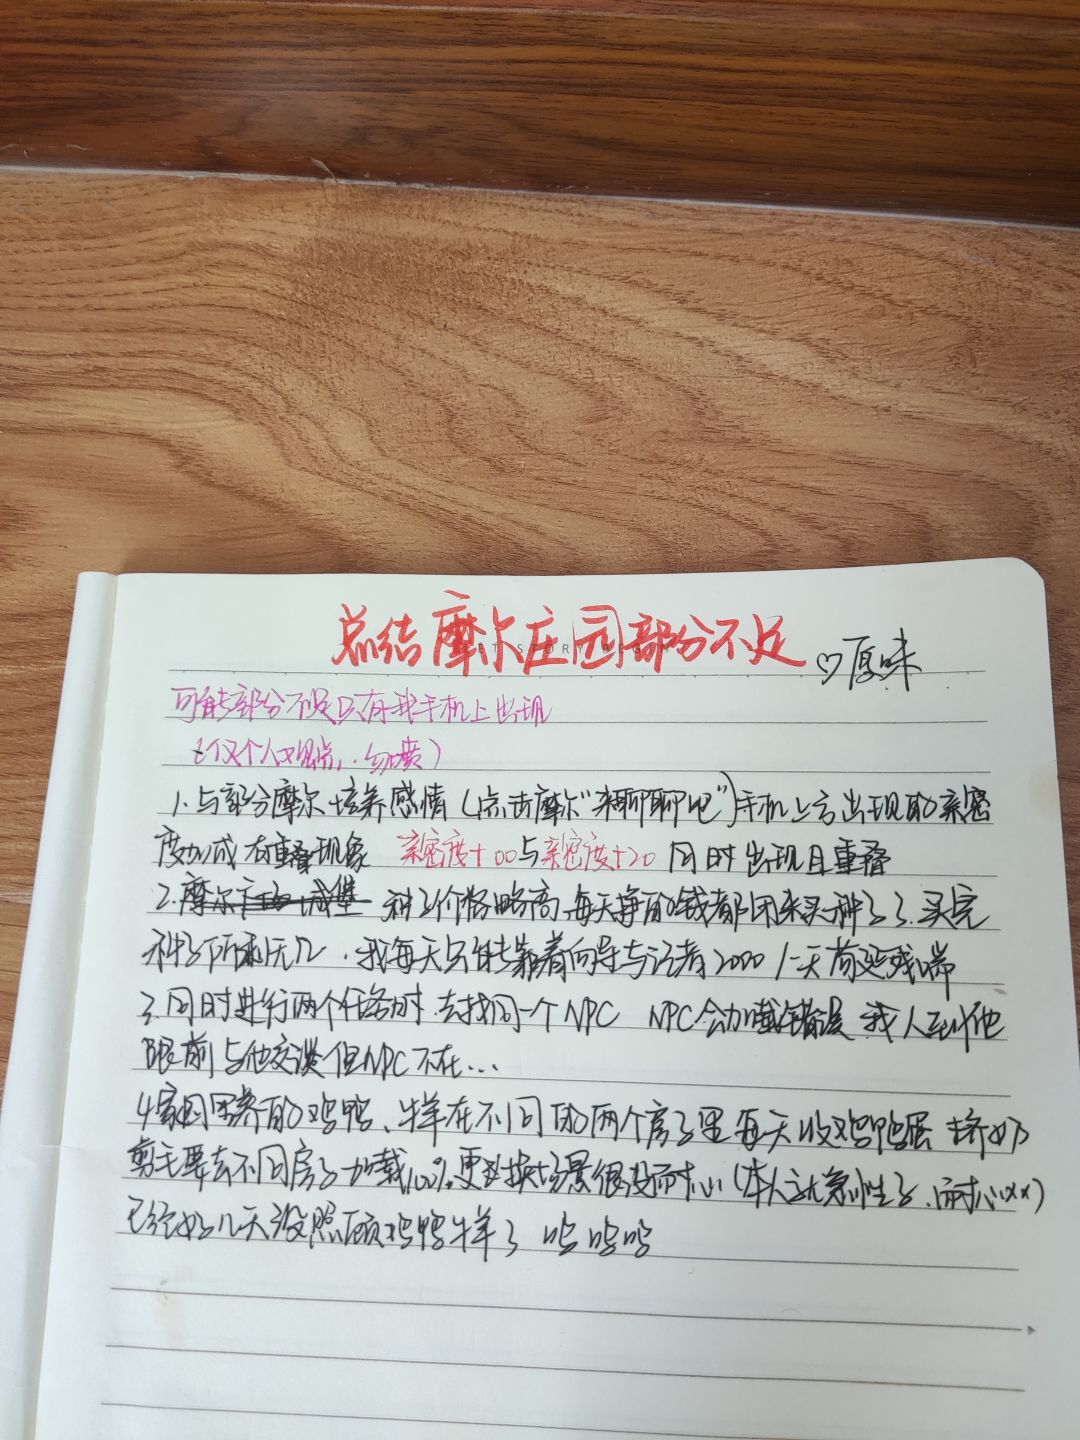 总结摩尔庄园部分不足
LET STORY BEGIN
♡原味
可能部分不足只有我手机上出现
(仅个人观点，勿喷)
1.与部分摩尔培养感情(点击摩尔“来聊聊吧”)手机上方出现的亲密
度加成有重叠现象 亲密度+00与亲密度+20同时出现且重叠
2.种子价格略高.每天挣的钱都用来买种子了.买完
种子所剩无几.我每天只能靠着向导与记者2000/一天苟延残喘
3.同时进行两个任务时.去找同一个NPC NPC会加载错误 我人到他
眼前与他交谈但NPC不在...
4.家园里养的鸡鸭、牛羊在不同的两个房子里每天收鸡鸭蛋 挤奶
剪毛要去不同房子加载100%更换场景很没耐心(本人就急性子.耐心xx)
已经好几天没照顾鸡鸭牛羊了 呜呜呜